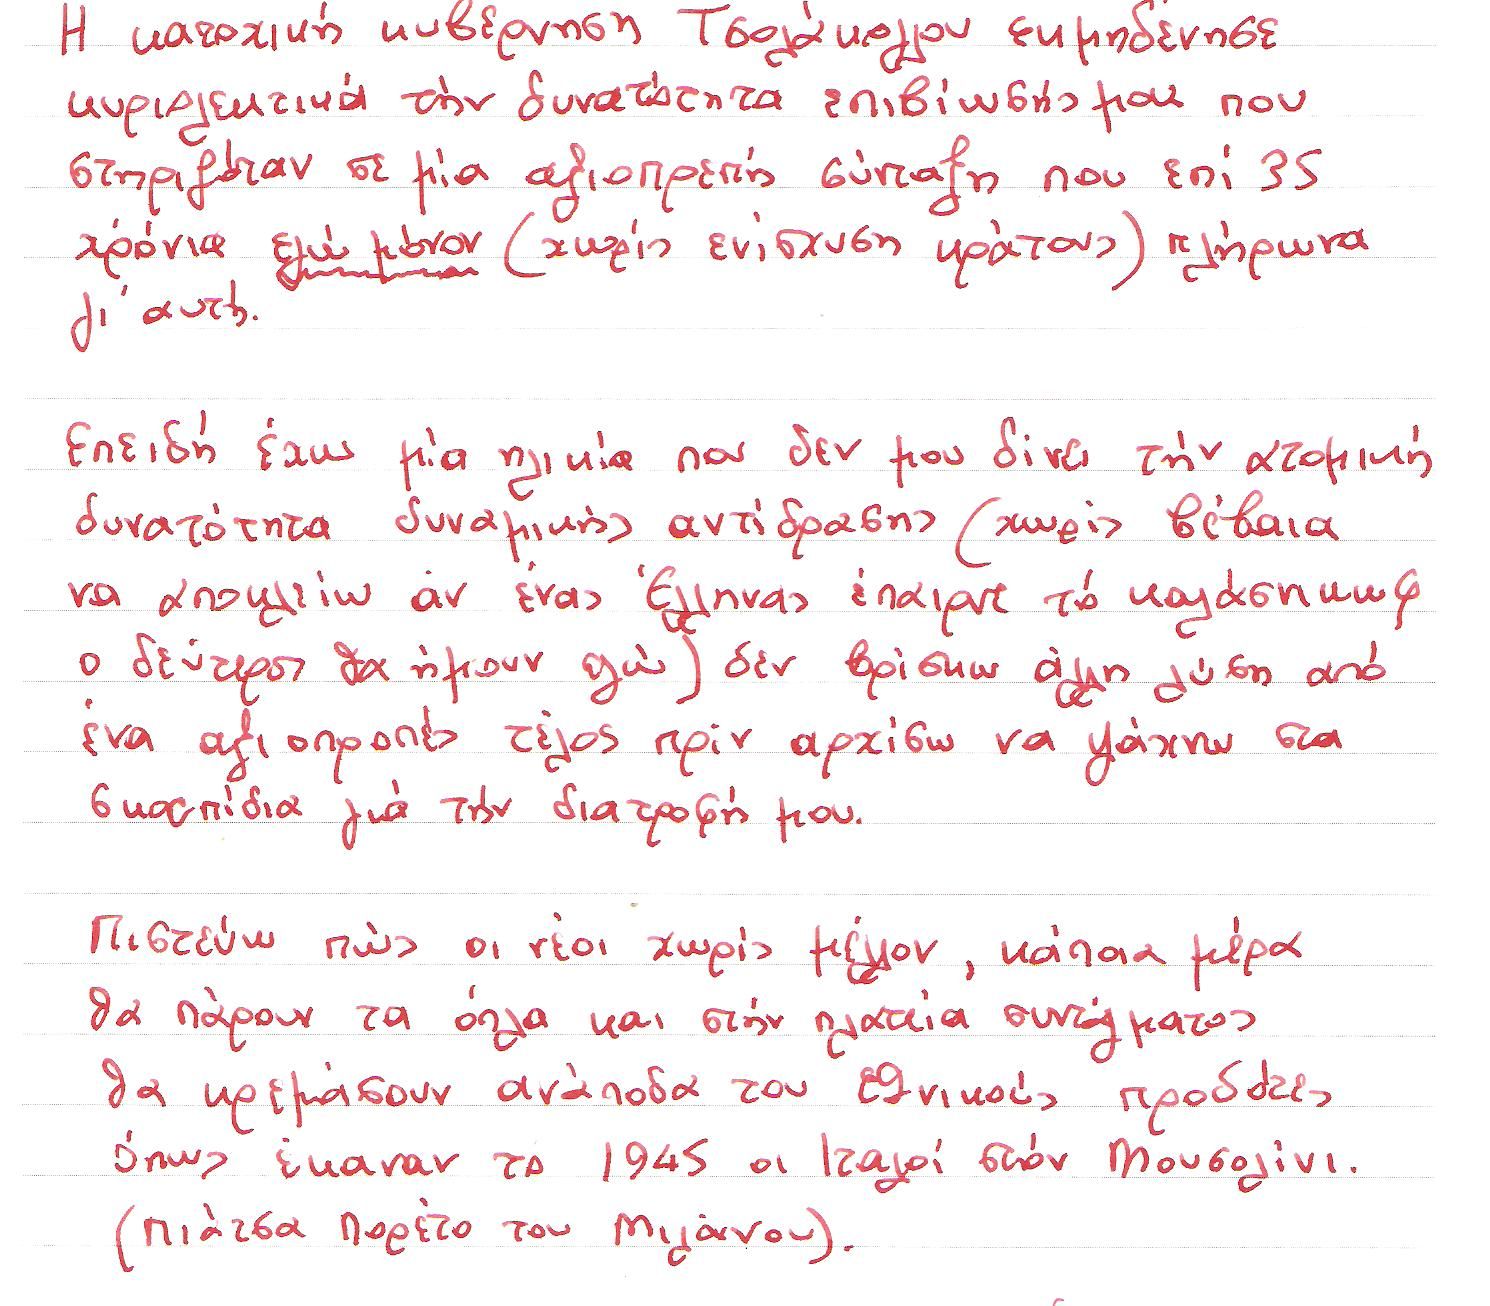 Η κατοχική κυβέρνηση Τσολάκογλου εκμηδένησε
κυριολεκτικά τήν δυνατότητα επιβίωσής μου που
στηριζόταν σε μία αξιοπρεπή σύνταξη που επί 35
χρόνια εγώ μόνον (χωρίς ενίσχυση κράτους) πλήρωνα
γι' αυτή.
Επειδή έχω μία ηλικία που δεν μου δίνει τήν ατομική
δυνατότητα δυναμικής αντίδρασης (χωρίς βέβαια
να αποκλείω άν ένας Έλληνας έπαιρνε τό καλάσηκωφ
ο δεύτερος θα ήμουν εγώ) δεν βρίσκω άλλη λύση από
ένα αξιοπρεπές τέλος πρίν αρχίσω να ψάχνω στα
σκουπίδια γιά τήν διατροφή μου.
Πιστεύω πώς οι νέοι χωρίς μέλλον, κάποια μέρα
θα πάρουν τα όπλα και στήν πλατεία συντάγματος
θα κρεμάσουν ανάποδα του εθνικούς προδότες
όπως έκαναν το 1945 οι Ιταλοί στόν Μουσολίνι.
(Πιάτσα Πορέτο του Μιλάνου).